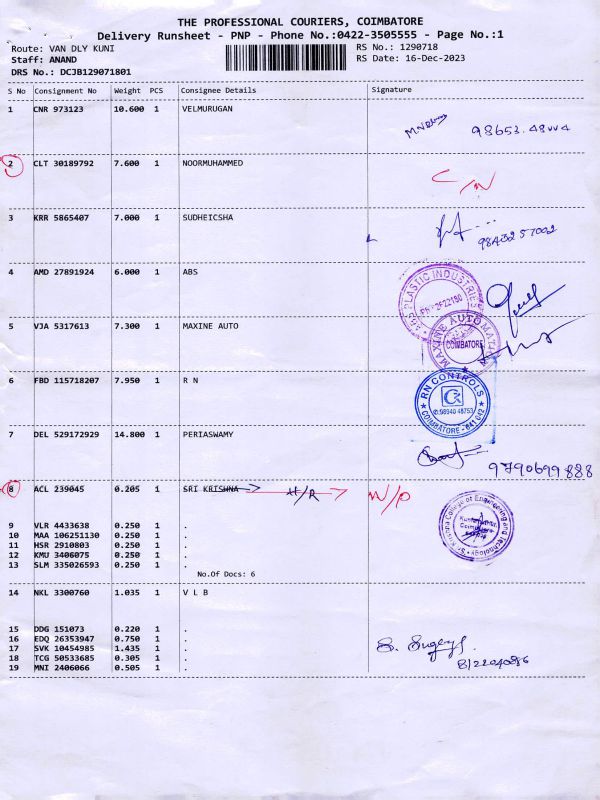 THE PROFESSIONAL COURIERS, COIMBATORE
Delivery Runsheet - PNP - Phone No.:0422-3505555 - Page No.:1
Route: VAN DLY KUNI RS No.: 1290718
Staff: ANAND RS Date: 16-Dec-2023
DRS No.: DCJB129071801
S No Consignment No Weight PCS Consignee Details Signature
1 CNR 973123 10.600 1 VELMURUGAN
98653.48004
2 CLT 30189792 7.600 1 NOORMUHAMMED
C/N
3 KRR 5865407 7.000 1 SUDHEICSHA
4 AMD 27891924 6.000 1 ABS
PLASTIC INDUSTRIES
5 VJA 5317613 7.300 1 MAXINE AUTO
MAXINE AUTOMATI
COIMBATORE
6 FBD 115718207 7.950 1 R N
RN CONTROLS
98940 48753
COIMBATORE - 641 042
7 DEL 529172929 14.800 1 PERIASWAMY
9790699888
8 ACL 239045 0.205 1 SRI KRISHNA H/R
Sri Krishna College of Engineering and Technology
9 VLR 4433638 0.250 1 .
10 MAA 106251130 0.250 1 .
11 HSR 2910803 0.250 1 .
12 KMU 3406075 0.250 1 .
13 SLM 335026593 0.250 1 .
No.Of Docs: 6
14 NKL 3300760 1.035 1 V L B
15 DDG 151073 0.220 1 .
16 EDQ 26353947 0.750 1 .
17 SVK 10454985 1.435 1 .
18 TCG 50533685 0.305 1 .
19 MNI 2406066 0.505 1 .